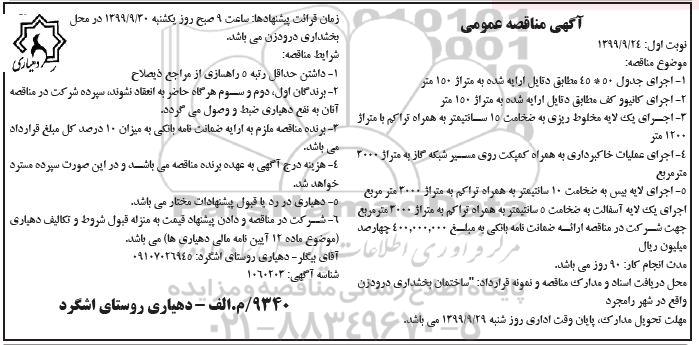 آگهی مناقصه عمومی
نوبت اول: ۱۳۹۹/۹/۲۴
موضوع مناقصه:
۱- اجرای جدول ۵۰ * ۴۵ مطابق دتایل ارایه شده به متراژ ۱۵۰ متر
۲- اجرای کانیوو کف مطابق دتایل ارایه شده به متراژ ۱۵۰ متر
۳- اجـرای یک لایه مخلوط ریزی به ضخامت ۱۵ سـانتیمتر به همراه تراکم با متراژ
۱۲۰۰ متر
۴- اجرای عملیات خاکبرداری به همراه کمپکت روی مسـیر شبکه گاز به متراژ ۳۰۰۰
مترمربع
۵- اجرای لایه بیس به ضخامت ۱۰ سانتیمتر به همراه تراکم به متراژ ۳۰۰۰ متر مربع
اجرای یک لایه آسفالت به ضخامت ۵ سانتیمتر به همراه تراکم به متراژ ۳۰۰۰ مترمربع
جهت شرکت در مناقصه ارائـه ضمانت نامه بانکی به مبلـغ ۴۰۰,۰۰۰,۰۰۰ چهارصد
میلیون ریال
مدت انجام کار: ۹۰ روز می باشد.
محل دریافت اسناد و مدارک مناقصه و نمونه قرارداد: "ساختمان بخشداری درودزن
واقع در شهر رامجرد
مهلت تحویل مدارک، پایان وقت اداری روز شنبه ۱۳۹۹/۹/۲۹ می باشد.
زمان قرائت پیشنهادها: ساعت ۹ صبح روز یکشنبه ۱۳۹۹/۹/۳۰ در محل
بخشداری درودزن می باشد.
شرایط مناقصه:
۱- داشتن حداقل رتبه ۵ راهسازی از مراجع ذیصلاح
۲- برندگان اول، دوم و سـوم هرگاه حاضر به انعقاد نشوند، سپرده شرکت در مناقصه
آنان به نفع دهیاری ضبط و وصول می گردد.
۳- برنده مناقصه ملزم به ارایه ضمانت نامه بانکی به میزان ۱۰ درصد کل مبلغ قرارداد
می باشد.
۴- هزینه درج آگهی به عهده برنده مناقصه می باشـد و در این صورت سپرده مسترد
خواهد شد.
۵- دهیاری در رد یا قبول پیشنهادات مختار می باشد.
۶- شـرکت در مناقصه و دادن پیشنهاد قیمت به منزله قبول شروط و تکالیف دهیاری
(موضوع ماده ۱۲ آیین نامه مالی دهیاری ها) می باشد.
آقای بیگلر- دهیاری روستای اشگرد: ۰۹۱۰۷۰۲۶۹۴۵
شناسه آگهی: ۱۰۶۰۲۰۳
۹۳۴۰/م.الف - دهیاری روستای اشگرد
دهیاری
مرکز فرآوری اطلاعات
پایگاه اطلاع رسانی مناقصه و مزایده
۰۲۱-۸۸۳۴۹۶۷۰-۵